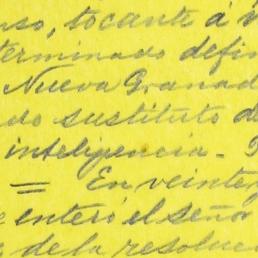 uso, tocante á
terminado defin
Nueva Granad
do sustituto de
inteligencia -
= En veinte
e enteró el seño
de la resoluc